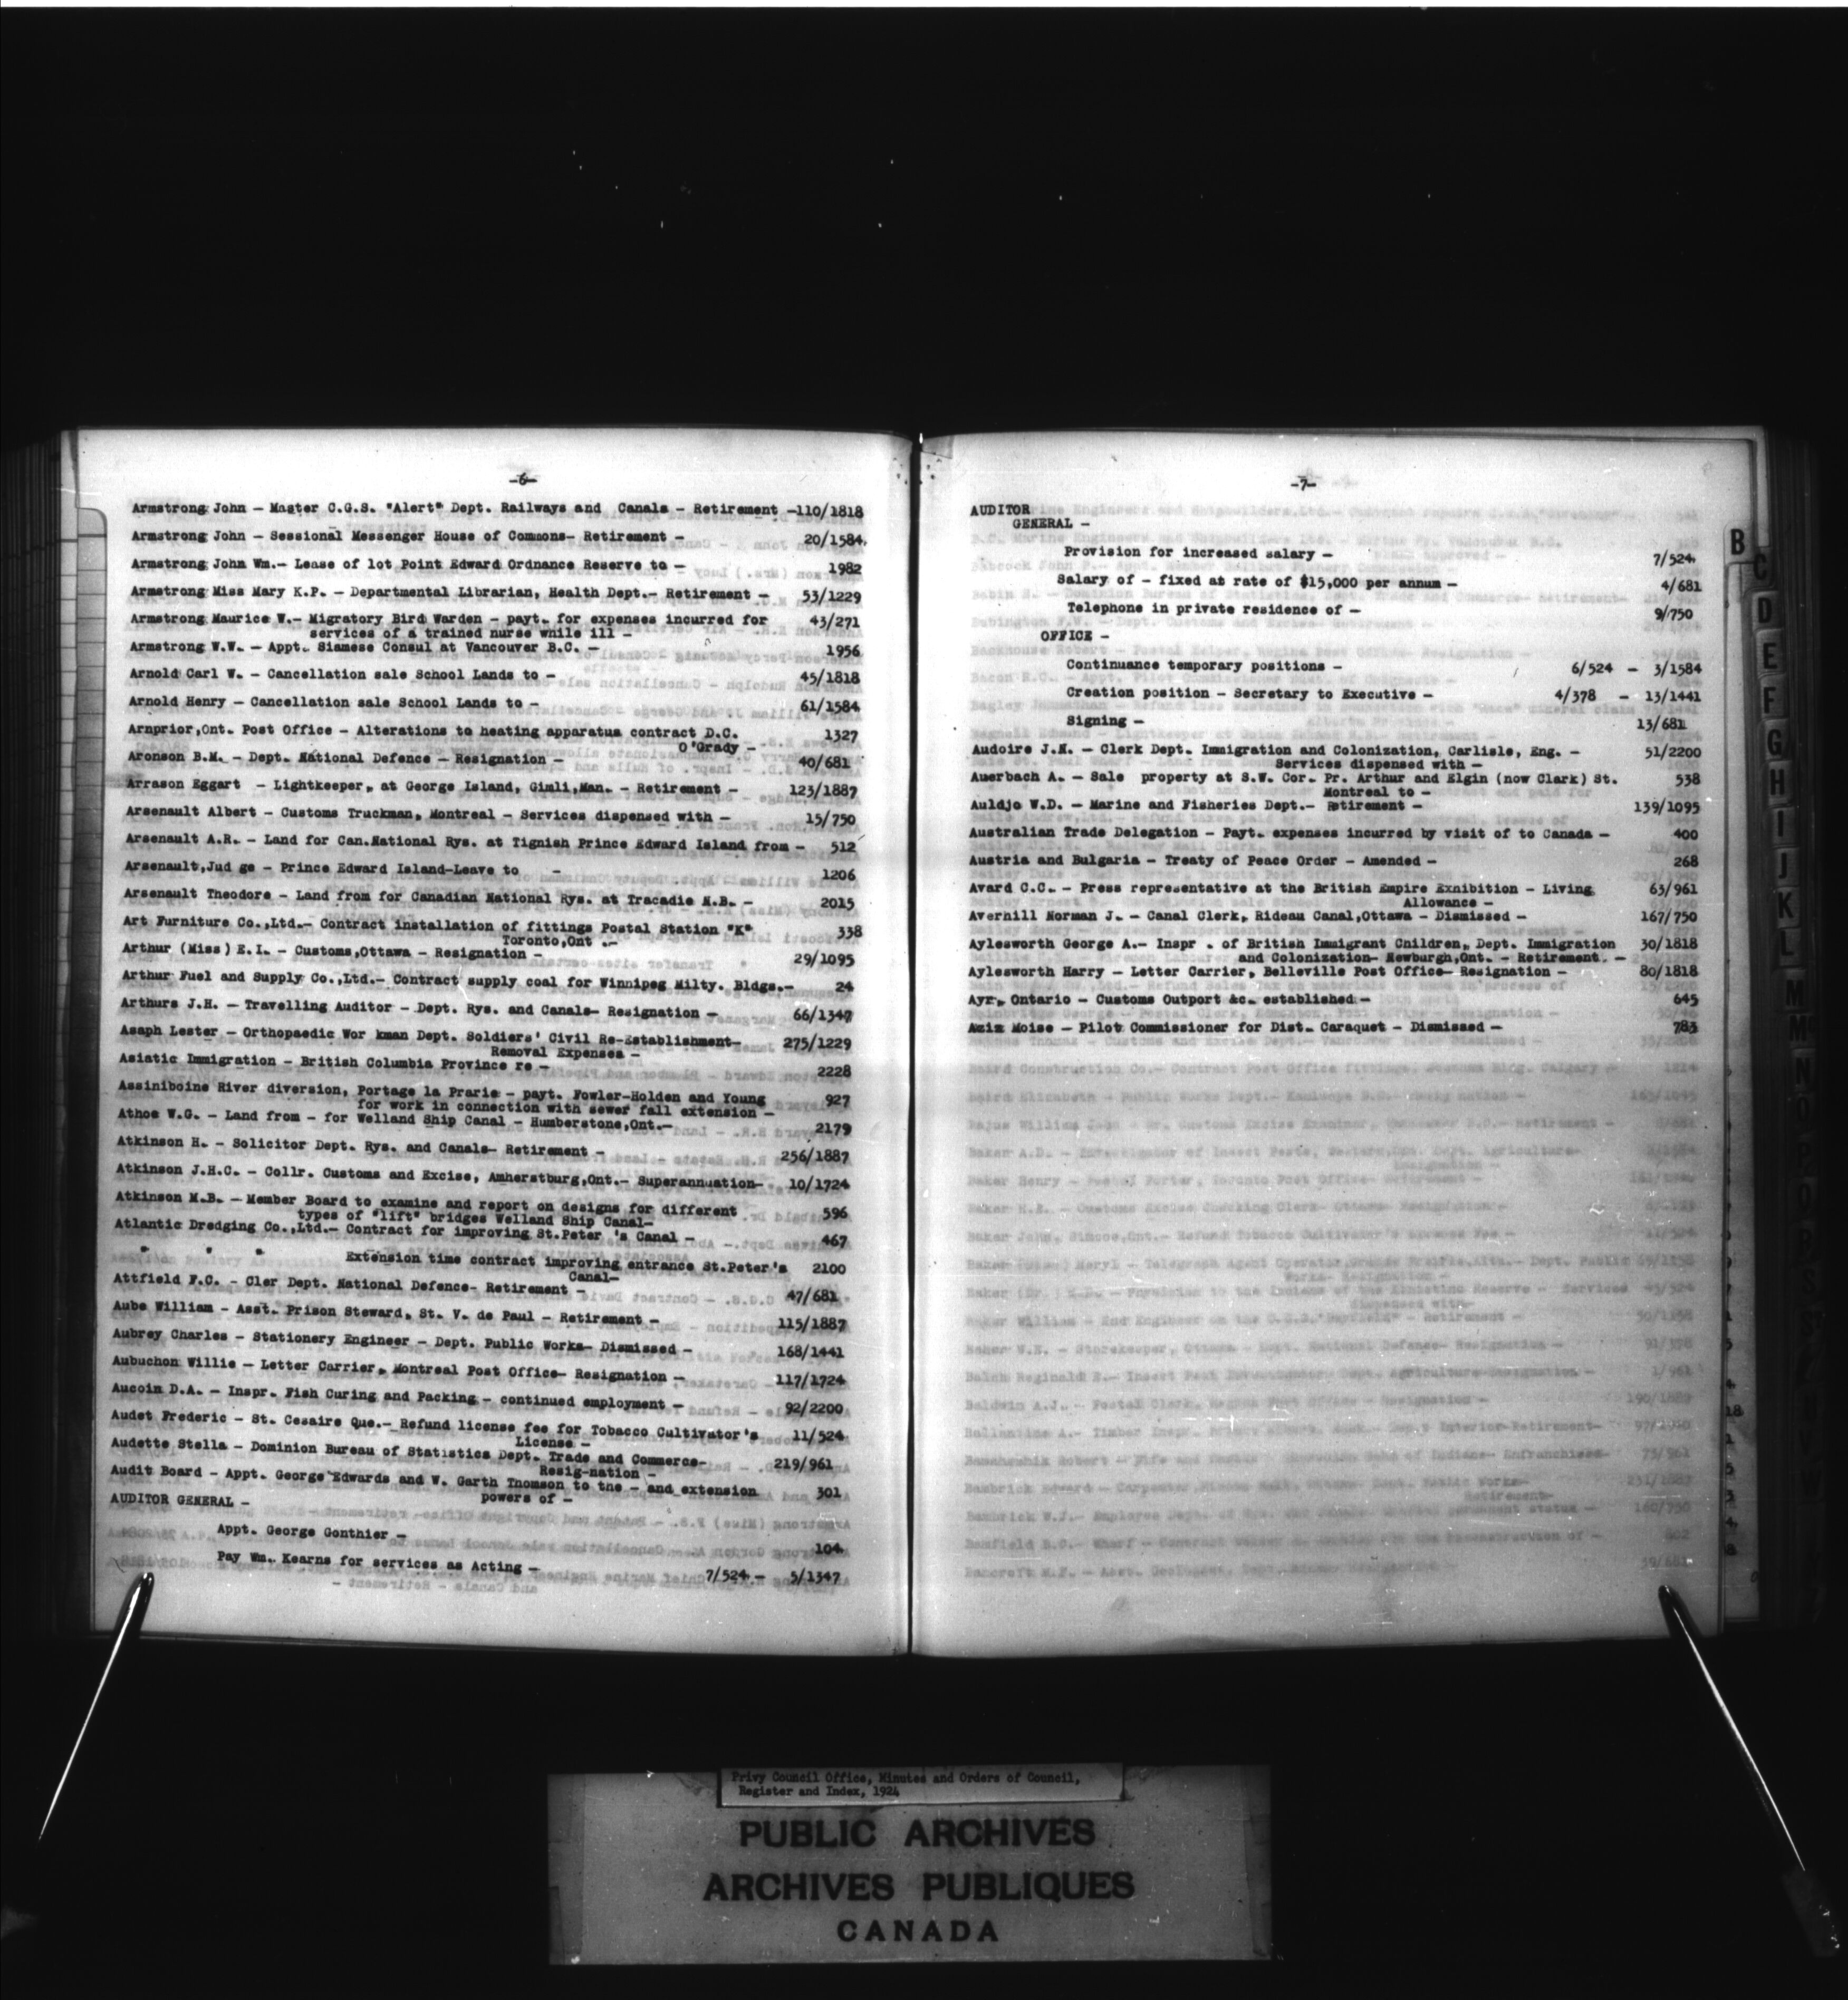 -6-
Armstrong John - Master C.G.S. "Alert" Dept. Railways and Canals - Retirement -110/1818
Armstrong John - Sessional Messenger House of Commons- Retirement - 20/1584
Armstrong John Wm.- Lease of lot Point Edward Ordnance Reserve to - 1982
Armstrong Miss Mary K.P. - Departmental Librarian, Health Dept.- Retirement - 53/1229
Armstrong Maurice W.- Migratory Bird Warden - payt. for expenses incurred for 43/271
services of a trained nurse while ill -
Armstrong W.W. - Appt. Siamese Consul at Vancouver B.C. - 1956
Arnold Carl W. - Cancellation sale School Lands to - 45/1818
Arnold Henry - Cancellation sale School Lands to - 61/1584
Arnprior,Ont. Post Office - Alterations to heating apparatus contract D.C. 1327
O'Grady -
Aronson B.M. - Dept. National Defence - Resignation - 40/681
Arrason Eggart - Lightkeeper, at George Island, Gimli,Man. - Retirement - 123/1887
Arsenault Albert - Customs Truckman, Montreal - Services dispensed with - 15/750
Arsenault A.R. - Land for Can.National Rys. at Tignish Prince Edward Island from - 512
Arsenault,Jud ge - Prince Edward Island-Leave to - 1206
Arsenault Theodore - Land from for Canadian National Rys. at Tracadie N.B. - 2015
Art Furniture Co.,Ltd.- Contract installation of fittings Postal Station "K" 338
Toronto,Ont .-
Arthur (Miss) E.I. - Customs,Ottawa - Resignation - 29/1095
Arthur Fuel and Supply Co.,Ltd.- Contract supply coal for Winnipeg Milty. Bldgs.- 24
Arthurs J.H. - Travelling Auditor - Dept. Rys. and Canals- Resignation - 66/1347
Asaph Lester - Orthopaedic Wor kman Dept. Soldiers' Civil Re-Establishment- 275/1229
Removal Expenses -
Asiatic Immigration - British Columbia Province re - 2228
Assiniboine River diversion, Portage la Prarie - payt. Fowler-Holden and Young 927
for work in connection with sewer fall extension -
Athoe W.G. - Land from - for Welland Ship Canal - Humberstone,Ont.- 2179
Atkinson H. - Solicitor Dept. Rys. and Canals- Retirement - 256/1887
Atkinson J.H.C. - Collr. Customs and Excise, Amherstburg,Ont.- Superannuation- 10/1724
Atkinson M.B. - Member Board to examine and report on designs for different 596
types of "lift" bridges Welland Ship Canal-
Atlantic Dredging Co.,Ltd.- Contract for improving St.Peter 's Canal - 467
" " " Extension time contract improving entrance St.Peter's 2100
Canal-
Attfield F.C. - Cler Dept. National Defence- Retirement - 47/681
Aube William - Asst. Prison Steward, St. V. de Paul - Retirement - 115/1887
Aubrey Charles - Stationery Engineer - Dept. Public Works- Dismissed - 168/1441
Aubuchon Willie - Letter Carrier, Montreal Post Office- Resignation - 117/1724
Aucoin D.A. - Inspr. Fish Curing and Packing - continued employment - 92/2200
Audet Frederic - St. Cesaire Que.- Refund license fee for Tobacco Cultivator's 11/524
License -
Audette Stella - Dominion Bureau of Statistics Dept. Trade and Commerce- 219/961
Resig-nation -
Audit Board - Appt. George Edwards and W. Garth Thomson to the - and extension 301
powers of -
AUDITOR GENERAL -
Appt. George Gonthier - 104
Pay Wm. Kearns for services as Acting - 7/524 - 5/1347
-7-
AUDITOR
GENERAL -
Provision for increased salary - 7/524
Salary of - fixed at rate of $15,000 per annum - 4/681
Telephone in private residence of - 9/750
OFFICE -
Continuance temporary positions - 6/524 - 3/1584
Creation position - Secretary to Executive - 4/378 - 13/1441
Signing - 13/681
Audoire J.N. - Clerk Dept. Immigration and Colonization, Carlisle, Eng. - 51/2200
Services dispensed with -
Auerbach A. - Sale property at S.W. Cor. Pr. Arthur and Elgin (now Clark) St. 538
Montreal to -
Auldjo W.D. - Marine and Fisheries Dept.- Retirement - 139/1095
Australian Trade Delegation - Payt. expenses incurred by visit of to Canada - 400
Austria and Bulgaria - Treaty of Peace Order - Amended - 268
Avard C.C. - Press representative at the British Empire Exnibition - Living 63/961
Allowance -
Averhill Norman J. - Canal Clerk, Rideau Canal,Ottawa - Dismissed - 167/750
Aylesworth George A.- Inspr . of British Immigrant Children, Dept. Immigration 30/1818
and Colonization- Newburgh,Ont. - Retirement. -
Aylesworth Harry - Letter Carrier, Belleville Post Office- Resignation - 80/1818
Ayr, Ontario - Customs Outport &c. established - 645
Azim Moise - Pilot Commissioner for Dist. Caraquet - Dismissed - 783
B
C
D
E
F
G
H
I
J
K
L
M
Privy Council Office, Minutes and Orders of Council,
Register and Index, 1924
PUBLIC ARCHIVES
ARCHIVES PUBLIQUES
CANADA